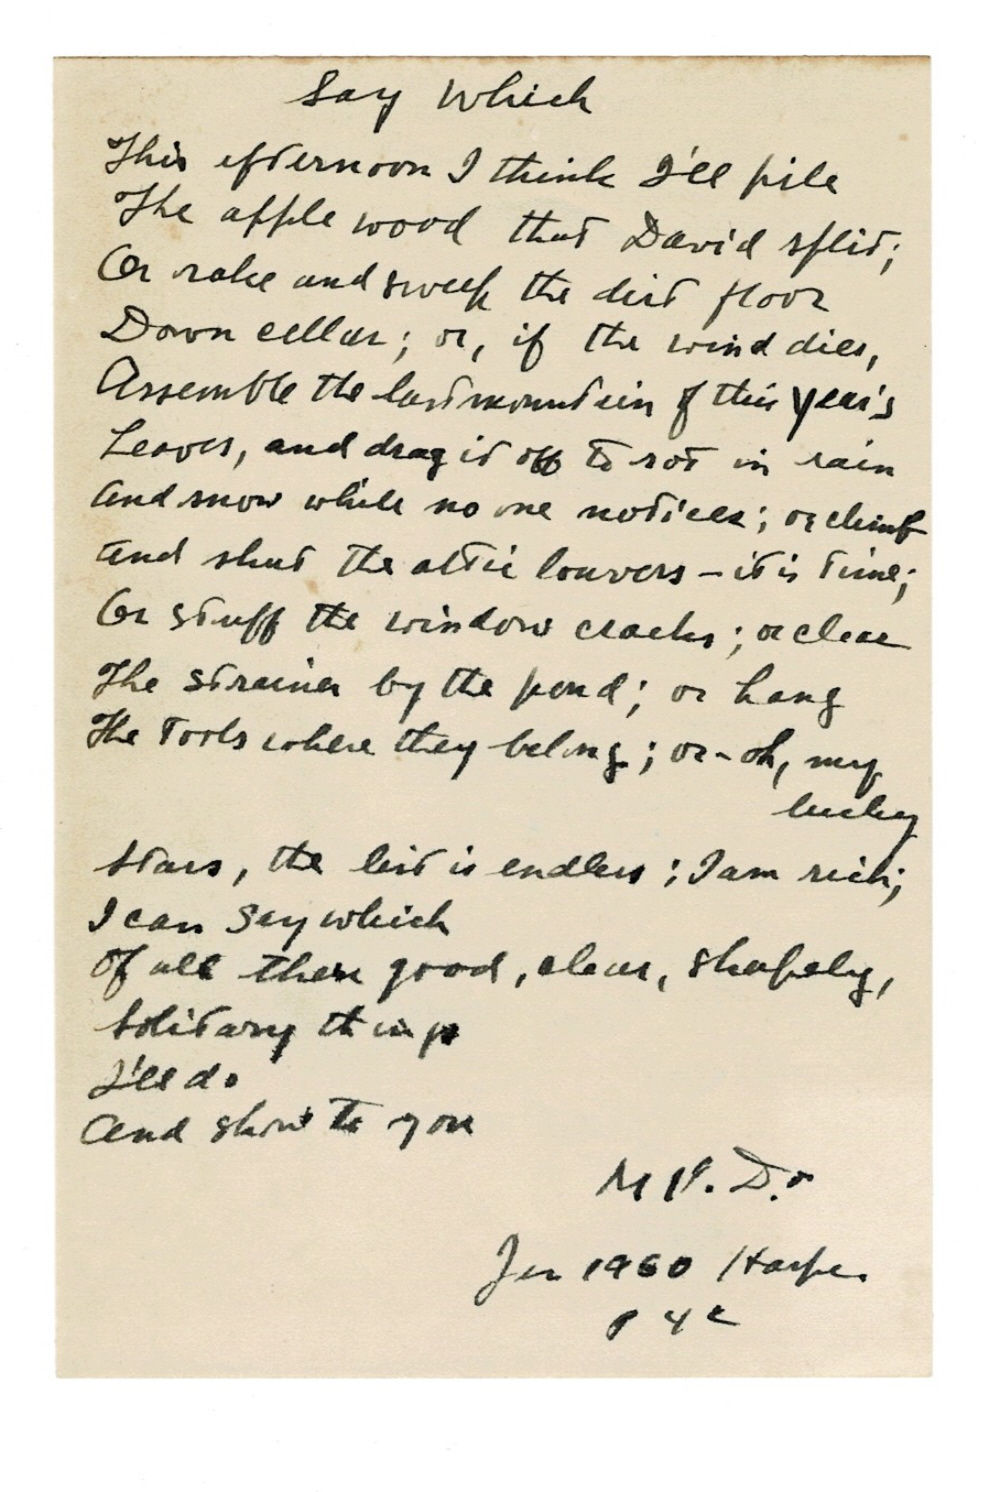 Say Which
This afternoon I think I'll pile
The apple wood that David split;
Or rake and sweep the dirt floor
Down cellar; or, if the wind dies,
Assemble the last mountain of this year's
Leaves, and drag it off to rot in rain
And snow while no one notices; or climb
And shut the attic louvers – it is time;
Or stuff the window cracks; or clear
The strainer by the pond; or hang
The tools where they belong; or – oh, my
lucky
Stars, the list is endless; I am rich;
I can say which
Of all these good, clear, shapely,
Solitary things
I'll do
And show to you
M V. D.
Jan 1960 Harper
P 42